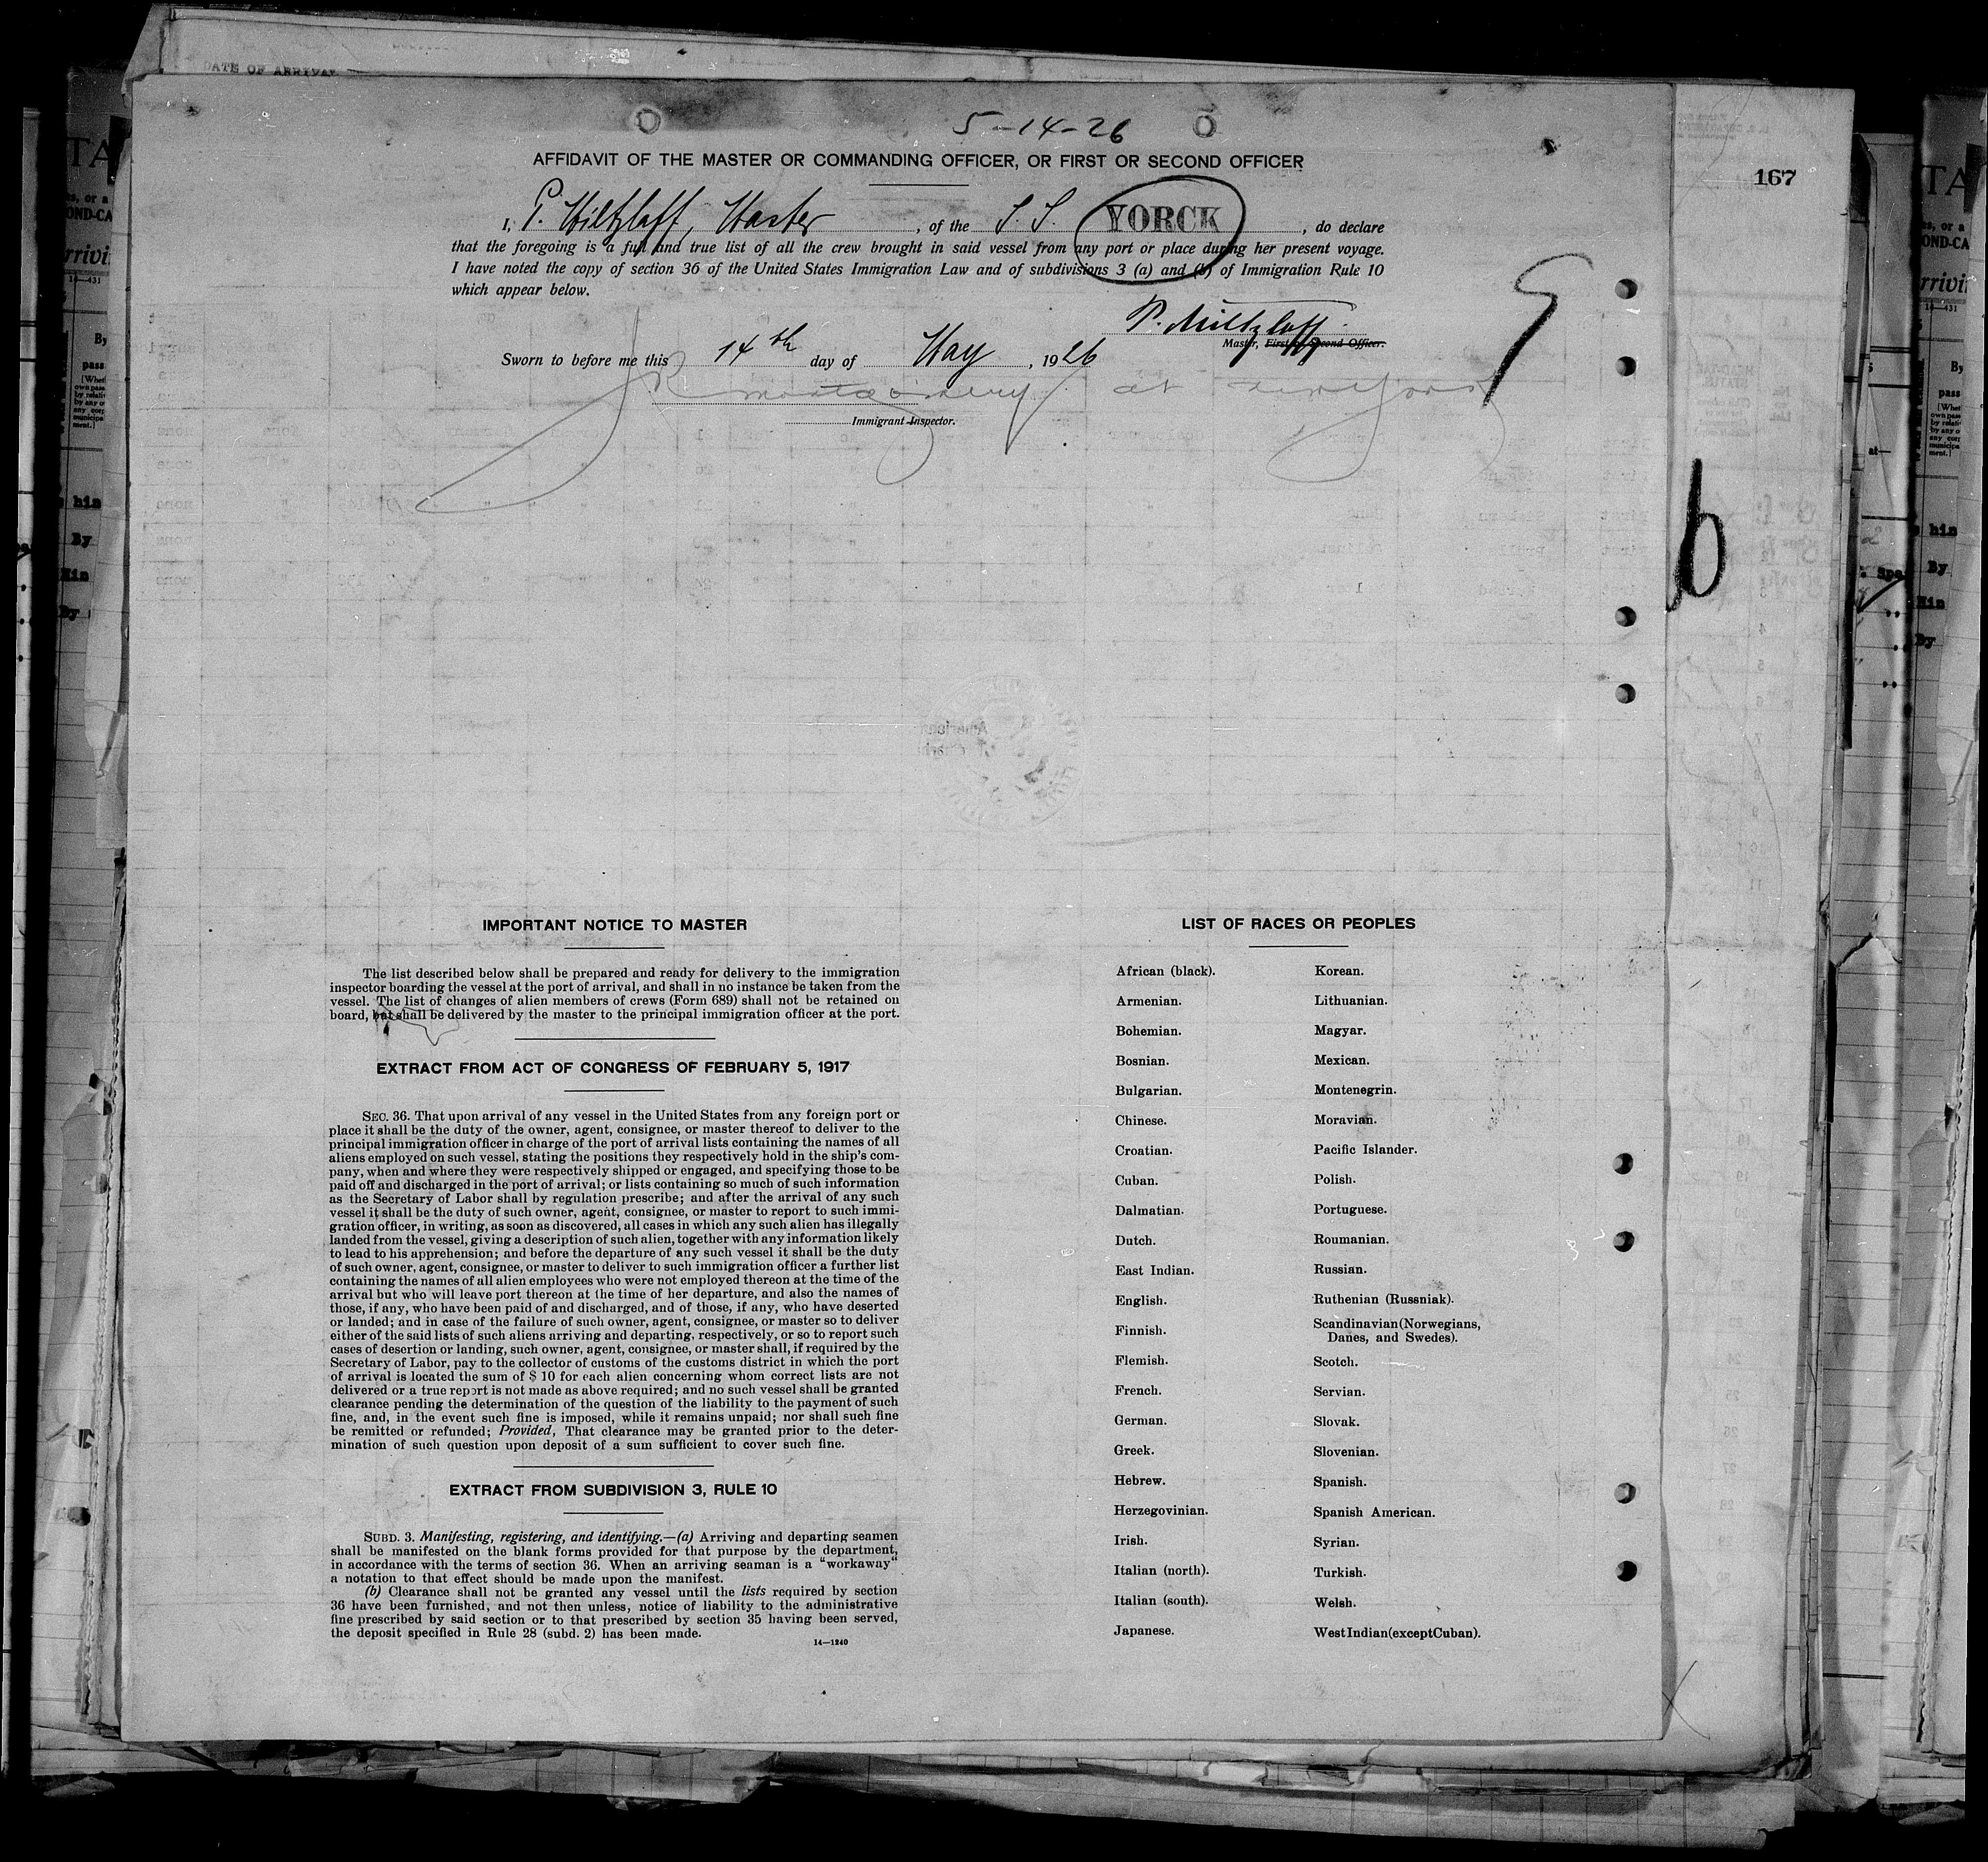 DATE OF ARRIVAL
5-14-26
167
AFFIDAVIT OF THE MASTER OR COMMANDING OFFICER, OR FIRST OR SECOND OFFICER
I, P. Wiltzlaff, Master, of the S. S. YORCK, do declare
that the foregoing is a full and true list of all the crew brought in said vessel from any port or place during her present voyage.
I have noted the copy of section 36 of the United States Immigration Law and of subdivisions 3 (a) and (b) of Immigration Rule 10
which appear below.
Master, First or Second Officer.
Sworn to before me this 14th day of May, 1926
at New York
Immigrant Inspector.
9
b
IMPORTANT NOTICE TO MASTER
The list described below shall be prepared and ready for delivery to the immigration
inspector boarding the vessel at the port of arrival, and shall in no instance be taken from the
vessel. The list of changes of alien members of crews (Form 689) shall not be retained on
board, but shall be delivered by the master to the principal immigration officer at the port.
EXTRACT FROM ACT OF CONGRESS OF FEBRUARY 5, 1917
SEC. 36. That upon arrival of any vessel in the United States from any foreign port or
place it shall be the duty of the owner, agent, consignee, or master thereof to deliver to the
principal immigration officer in charge of the port of arrival lists containing the names of all
aliens employed on such vessel, stating the positions they respectively hold in the ship's com-
pany, when and where they were respectively shipped or engaged, and specifying those to be
paid off and discharged in the port of arrival; or lists containing so much of such information
as the Secretary of Labor shall by regulation prescribe; and after the arrival of any such
vessel it shall be the duty of such owner, agent, consignee, or master to report to such immi-
gration officer, in writing, as soon as discovered, all cases in which any such alien has illegally
landed from the vessel, giving a description of such alien, together with any information likely
to lead to his apprehension; and before the departure of any such vessel it shall be the duty
of such owner, agent, consignee, or master to deliver to such immigration officer a further list
containing the names of all alien employees who were not employed thereon at the time of the
arrival but who will leave port thereon at the time of her departure, and also the names of
those, if any, who have been paid of and discharged, and of those, if any, who have deserted
or landed; and in case of the failure of such owner, agent, consignee, or master so to deliver
either of the said lists of such aliens arriving and departing, respectively, or so to report such
cases of desertion or landing, such owner, agent, consignee, or master shall, if required by the
Secretary of Labor, pay to the collector of customs of the customs district in which the port
of arrival is located the sum of $ 10 for each alien concerning whom correct lists are not
delivered or a true report is not made as above required; and no such vessel shall be granted
clearance pending the determination of the question of the liability to the payment of such
fine, and, in the event such fine is imposed, while it remains unpaid; nor shall such fine
be remitted or refunded; Provided, That clearance may be granted prior to the deter-
mination of such question upon deposit of a sum sufficient to cover such fine.
EXTRACT FROM SUBDIVISION 3, RULE 10
SUBD. 3. Manifesting, registering, and identifying.—(a) Arriving and departing seamen
shall be manifested on the blank forms provided for that purpose by the department,
in accordance with the terms of section 36. When an arriving seaman is a "workaway"
a notation to that effect should be made upon the manifest.
(b) Clearance shall not be granted any vessel until the lists required by section
36 have been furnished, and not then unless, notice of liability to the administrative
fine prescribed by said section or to that prescribed by section 35 having been served,
the deposit specified in Rule 28 (subd. 2) has been made.
14—1240
LIST OF RACES OR PEOPLES
African (black).
Armenian.
Bohemian.
Bosnian.
Bulgarian.
Chinese.
Croatian.
Cuban.
Dalmatian.
Dutch.
East Indian.
English.
Finnish.
Flemish.
French.
German.
Greek.
Hebrew.
Herzegovinian.
Irish.
Italian (north).
Italian (south).
Japanese.
Korean.
Lithuanian.
Magyar.
Mexican.
Montenegrin.
Moravian.
Pacific Islander.
Polish.
Portuguese.
Roumanian.
Russian.
Ruthenian (Russniak).
Scandinavian(Norwegians,
Danes, and Swedes).
Scotch.
Servian.
Slovak.
Slovenian.
Spanish.
Spanish American.
Syrian.
Turkish.
Welsh.
West Indian(except Cuban).